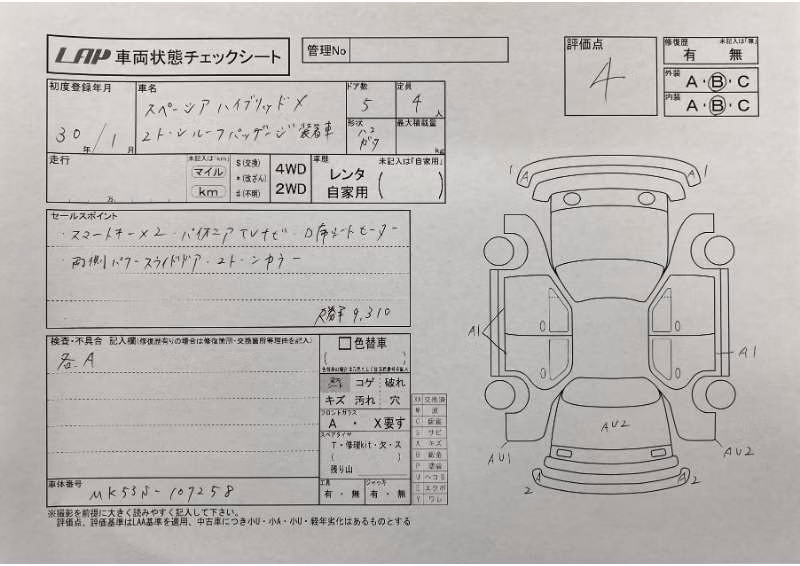 LAP 車両状態チェックシート
管理No
評価点
4
修復歴 未記入は「無」
有 無
外装
A・B・C
内装
A・B・C
初度登録年月
30年/1月
車名
スペーシア ハイブリッドX
2トーンルーフパッケージ装着車
ドア数
5
定員
4人
形状
ハコ
最大積載量
kg
走行
万
未記入は「km」
マイル
km
$(交換)
*(改ざん)
#(不明)
4WD
2WD
車歴 未記入は「自家用」
レンタ
自家用
セールスポイント
・スマートキー×2・パイオニアTVナビ・D席シートヒーター
・両側パワースライドドア・2トーンカラー
9,310
検査・不具合 記入欄(修復歴有りの場合は修復箇所・交換箇所等理由を記入)
各A
色替車
コゲ 破れ
キズ 汚れ 穴
フロントガラス
A ・ X要す
スペアタイヤ
T・修理kit・欠・ス
残り山
工具
有・無
ジャッキ
有・無
XX 交換済
W 波
C 腐食
S サビ
A キズ
B 鈑金
P 塗装
U ヘコミ
E エクボ
Y ワレ
車体番号
MK53S-107258
1 A
A 1
A1
A1
AU2
AU1
AU2
2 A
A 2
※撮影を前提に大きく読みやすく記入して下さい。
評価点、評価基準はLAA基準を適用、中古車につき小U・小A・小U・経年劣化はあるものとする